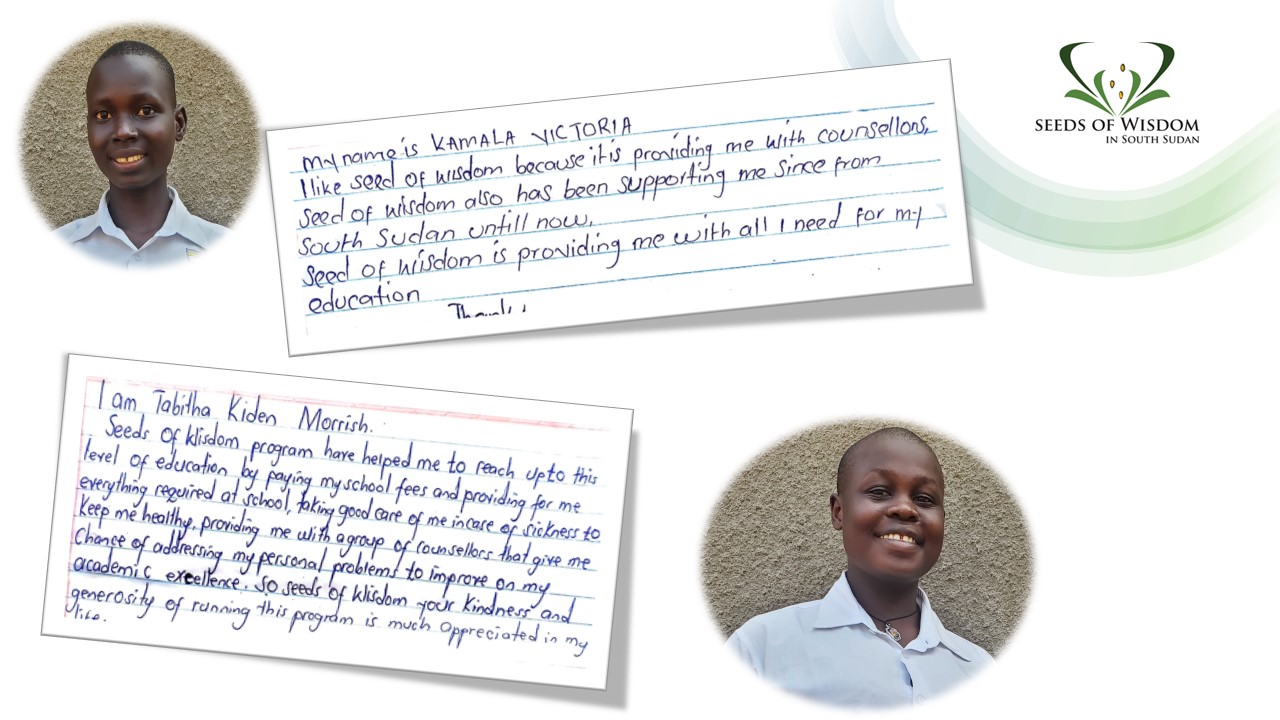 SEEDS OF WISDOM
IN SOUTH SUDAN
My name is KAMALA VICTORIA
I like seed of wisdom because it is providing me with counsellors,
seed of wisdom also has been supporting me since from
South Sudan untill now.
Seed of wisdom is providing me with all I need for my
education
I am Tabitha Kiden Morrish.
Seeds of Wisdom program have helped me to reach upto this
level of education by paying my school fees and providing for me
everything required at school, taking good care of me incase of sickness to
keep me healthy, providing me with a group of counsellors that give me
Chance of addressing my personal problems to improve on my
academic excellence. So seeds of Wisdom your kindness and
generosity of running this program is much appreciated in my
life.